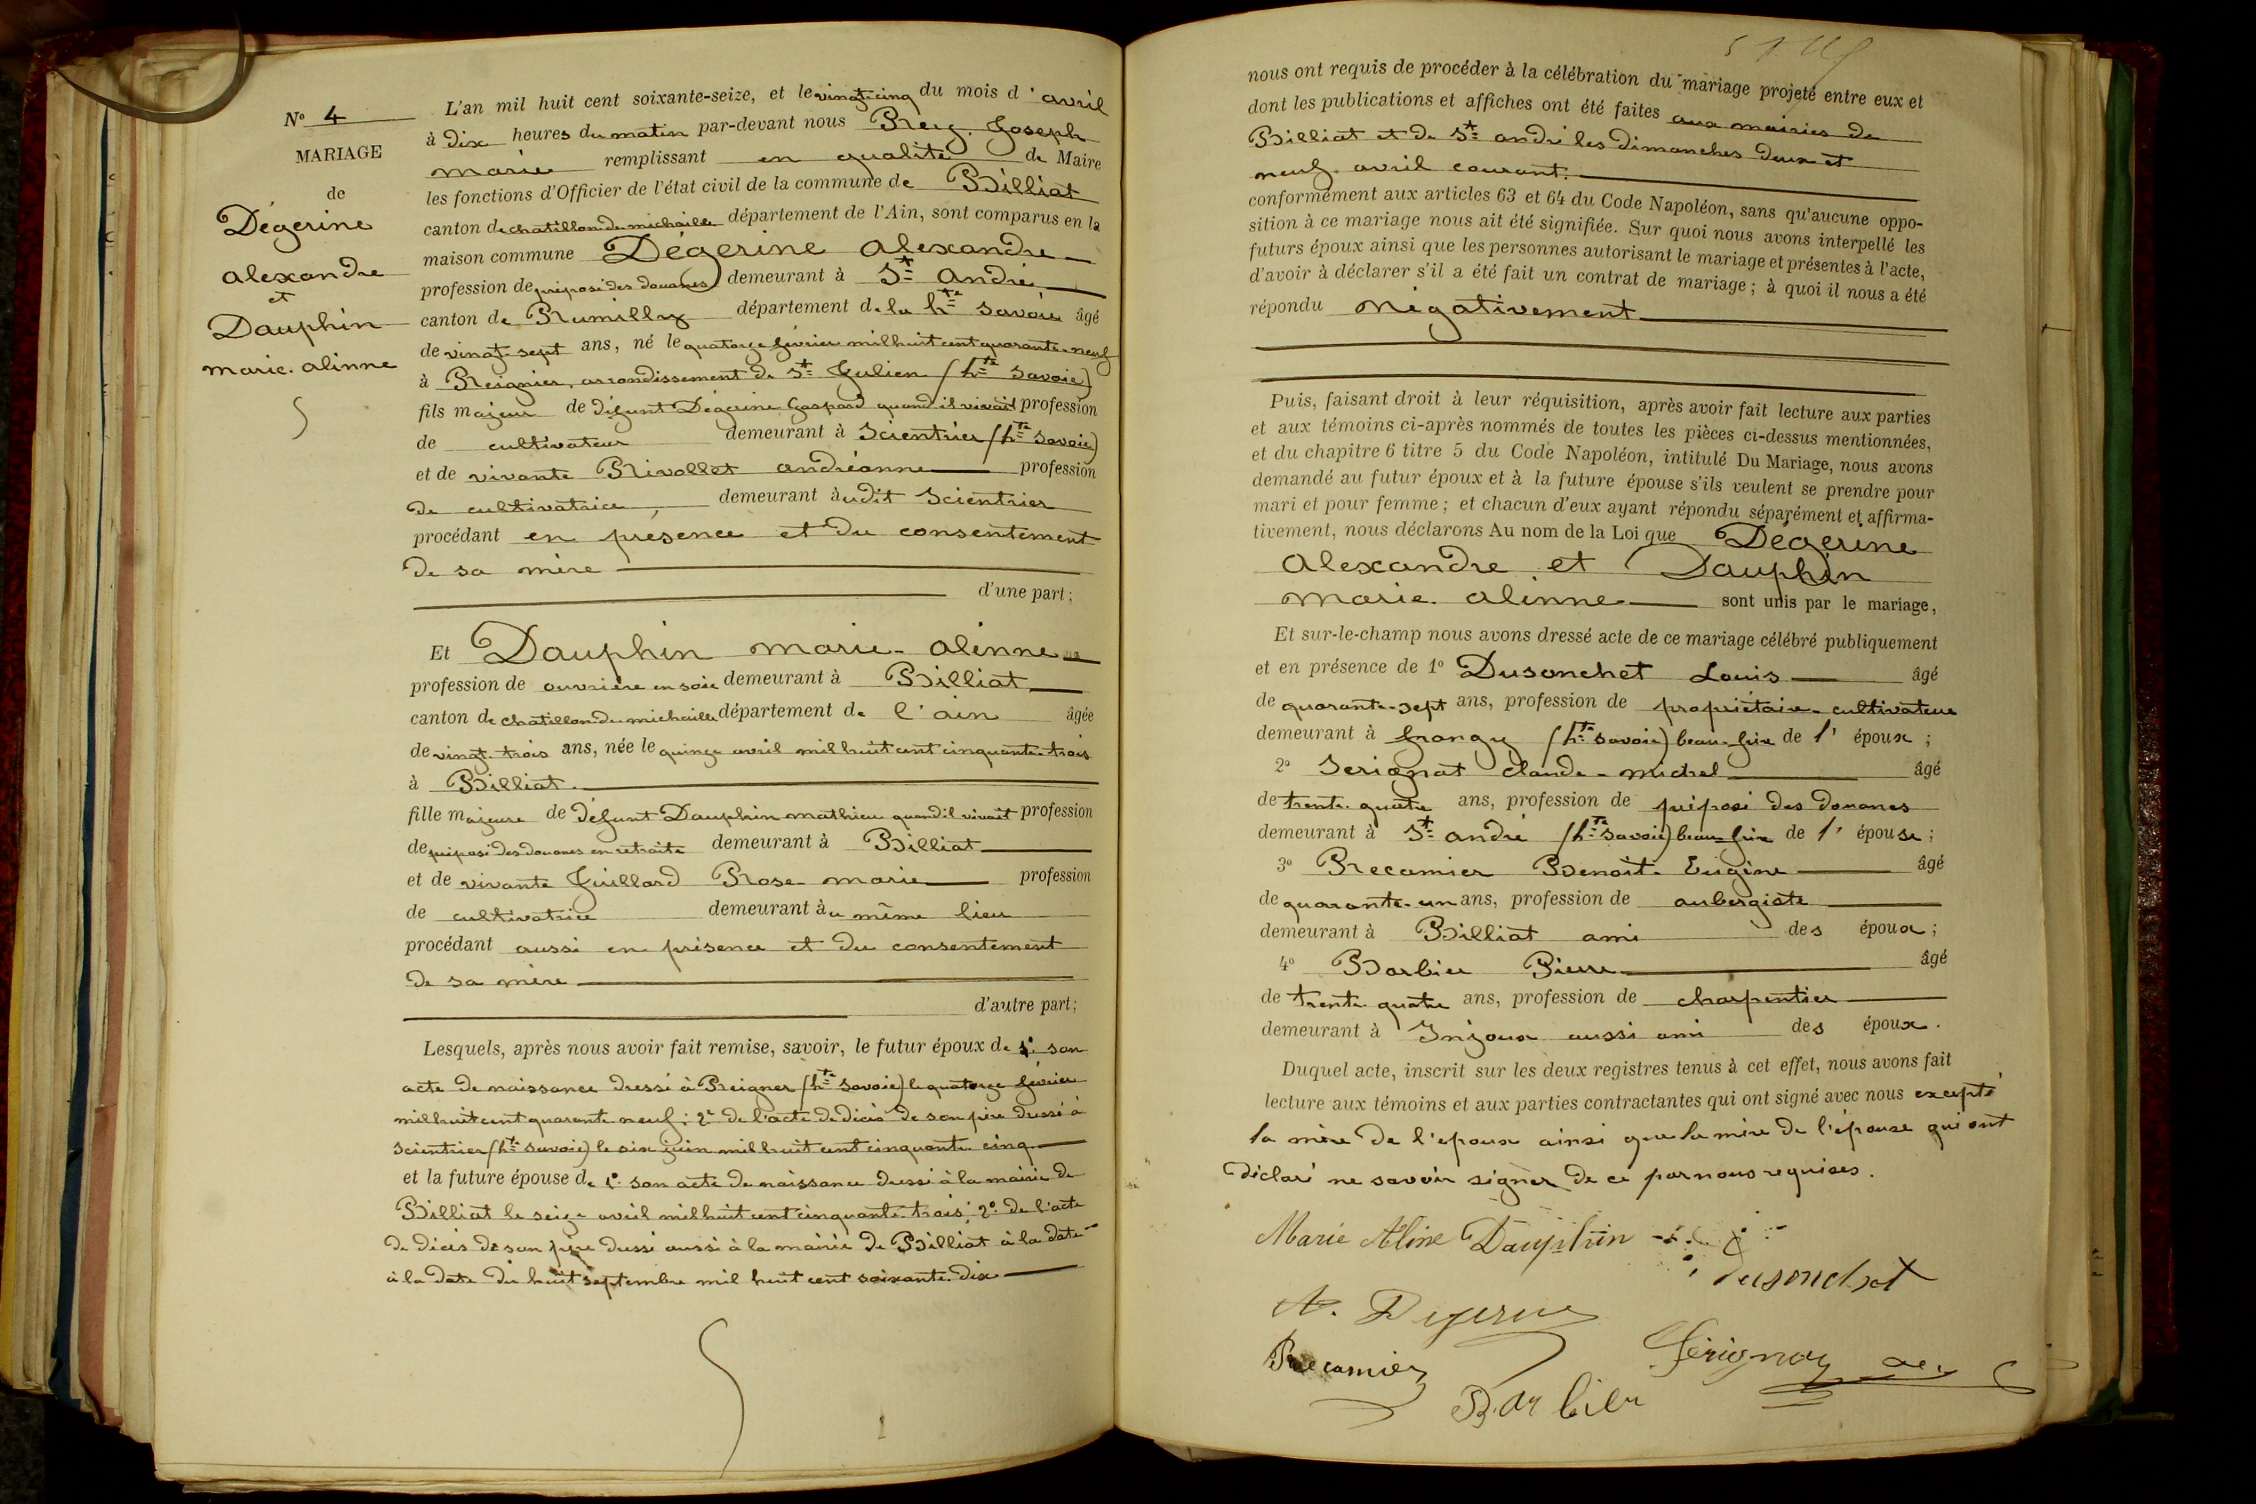 N° 4
MARIAGE
de
Dégerine
alexandre
et
Dauphin
marie. alinne
L'an mil huit cent soixante-seize, et le vingt-cinq du mois d'avril
à dix heures du matin par-devant nous Rey. Joseph
marie remplissant en qualité de Maire
les fonctions d'Officier de l'état civil de la commune de Billiat
canton de chatillon de michaille département de l'Ain, sont comparus en la
maison commune Dégerine alexandre
profession de préposé des douanes demeurant à St andré
canton de Rumilly département de la hte savoie âgé
de vingt-sept ans, né le quatorze février mil huit cent quarante-neuf
à Reignier, arrondissement de St Julien (hte savoie)
fils majeur de défunt Dégerine Gaspard quand il vivait profession
de cultivateur demeurant à Scientrier (hte savoie)
et de vivante Rivollet andréanne profession
de cultivatrice, demeurant audit Scientrier
procédant en présence et du consentement
de sa mère
d'une part;
Et Dauphin marie-alinne
profession de ouvrière en soie demeurant à Billiat
canton de chatillon de michaille département de l'ain âgée
de vingt-trois ans, née le quinze avril mil huit cent cinquante-trois
à Billiat.
fille majeure de défunt Dauphin mathieu quand il vivait profession
de préposé des douanes en retraite demeurant à Billiat
et de vivante Juillard Rose-marie profession
de cultivatrice demeurant au même lieu
procédant aussi en présence et du consentement
de sa mère
d'autre part;
Lesquels, après nous avoir fait remise, savoir, le futur époux de 1° son
acte de naissance dressé à Reigner (hte savoie) le quatorze février
mil huit cent quarante neuf; 2° de l'acte de décès de son père dressé à
Scientrier (hte savoie) le six juin mil huit cent cinquante-cinq
et la future épouse de 1° son acte de naissance dressé à la mairie de
Billiat le seize avril mil huit cent cinquante-trois; 2° de l'acte
de décès de son père dressé aussi à la mairie de Billiat à la date
à la date du huit septembre mil huit cent soixante-dix
nous ont requis de procéder à la célébration du mariage projeté entre eux et
dont les publications et affiches ont été faites aux mairies de
Billiat et de St andré les dimanches deux et
neuf avril courant.
conformément aux articles 63 et 64 du Code Napoléon, sans qu'aucune oppo-
sition à ce mariage nous ait été signifiée. Sur quoi nous avons interpellé les
futurs époux ainsi que les personnes autorisant le mariage et présentes à l'acte,
d'avoir à déclarer s'il a été fait un contrat de mariage; à quoi il nous a été
répondu négativement
Puis, faisant droit à leur réquisition, après avoir fait lecture aux parties
et aux témoins ci-après nommés de toutes les pièces ci-dessus mentionnées,
et du chapitre 6 titre 5 du Code Napoléon, intitulé Du Mariage, nous avons
demandé au futur époux et à la future épouse s'ils veulent se prendre pour
mari et pour femme; et chacun d'eux ayant répondu séparément et affirma-
tivement, nous déclarons Au nom de la Loi que Dégerine
Alexandre et Dauphin
marie. alinne sont unis par le mariage,
Et sur-le-champ nous avons dressé acte de ce mariage célébré publiquement
et en présence de 1° Dusonchet Louis âgé
de quarante-sept ans, profession de propriétaire-cultivateur
demeurant à frangy (hte savoie) beau-frère de l'époux;
2° Serignat claude-michel âgé
de trente-quatre ans, profession de préposé des douanes
demeurant à St andré (hte savoie) beau-frère de l'épouse;
3° Recamier Benoit-Eugène âgé
de quarante-un ans, profession de aubergiste
demeurant à Billiat ami des époux;
4° Barbier Pierre âgé
de trente-quatre ans, profession de charpentier
demeurant à Injoux aussi ami des époux.
Duquel acte, inscrit sur les deux registres tenus à cet effet, nous avons fait
lecture aux témoins et aux parties contractantes qui ont signé avec nous excepté
la mère de l'époux ainsi que la mère de l'épouse qui ont
déclaré ne savoir signer de ce par nous requises.
Marie Aline Dauphin
Dusonchet
A. Degerine
Recamier
Sérignat
Barbier